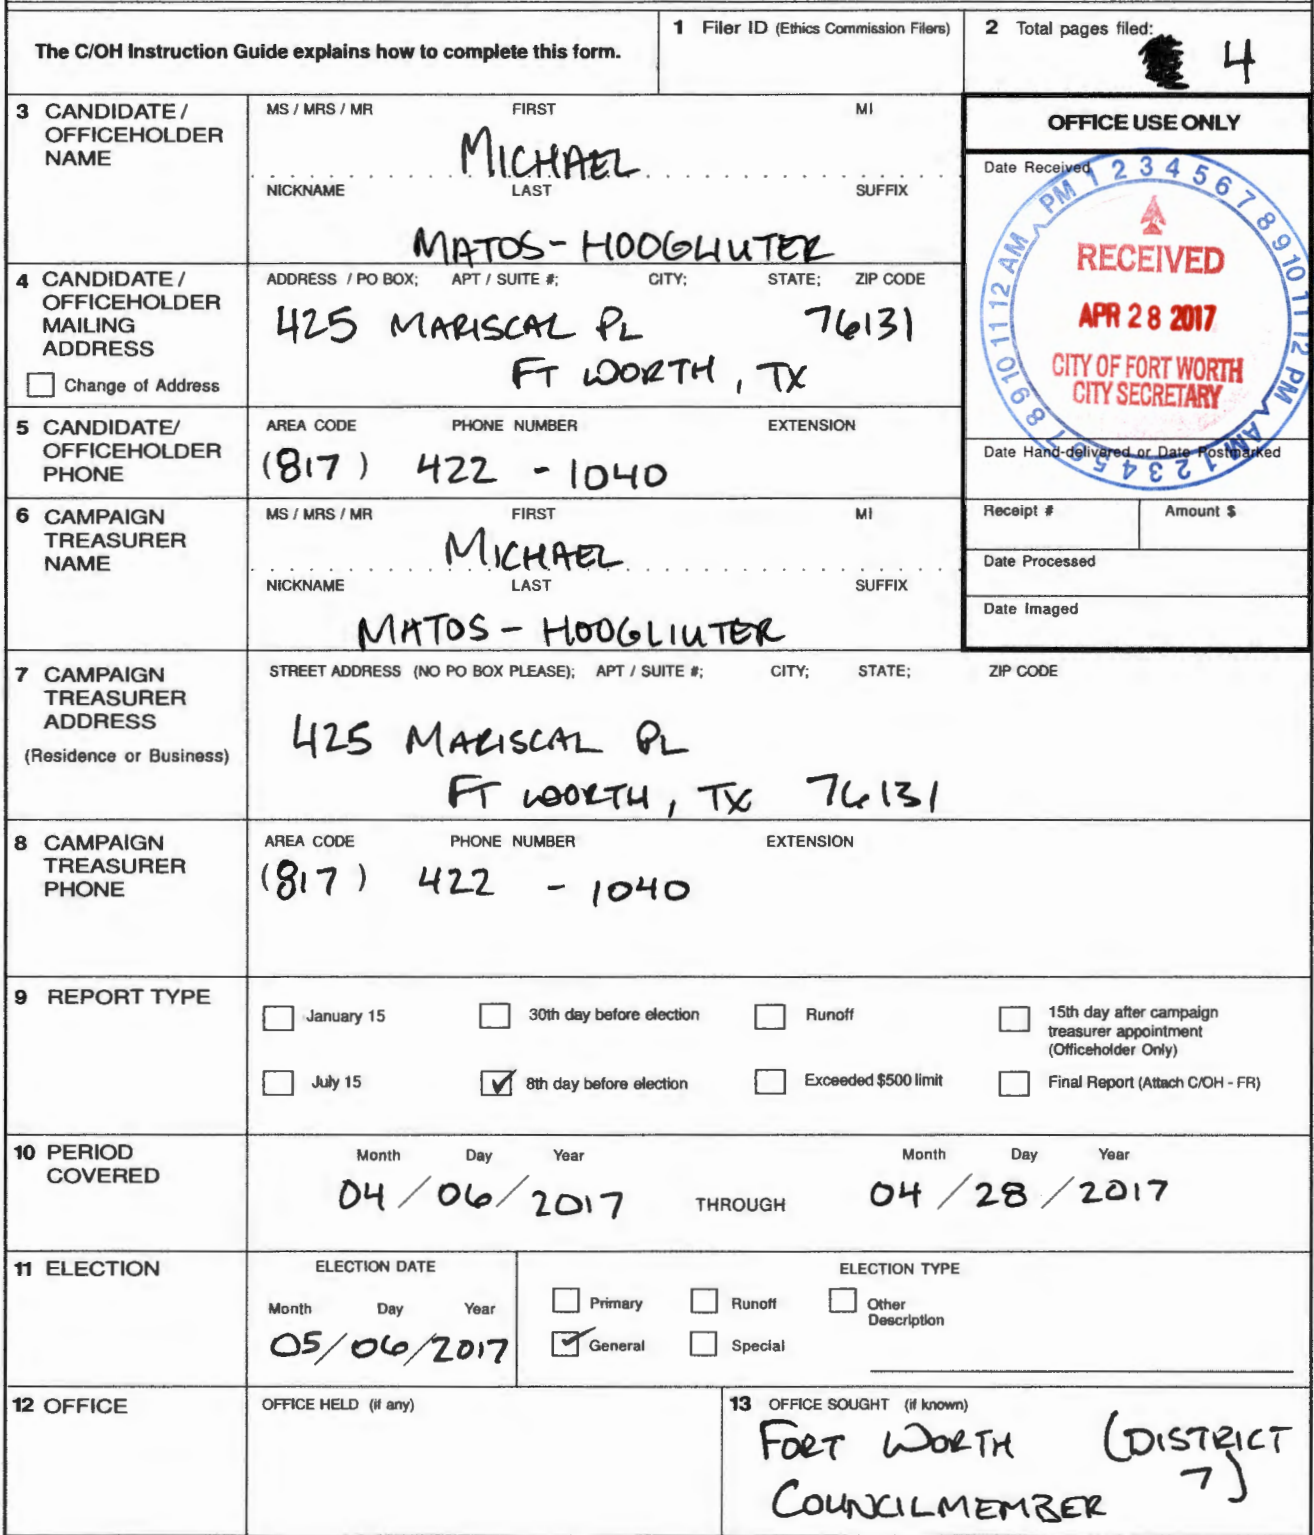 The C/OH Instruction Guide explains how to complete this form.
1 Filer ID (Ethics Commission Filers)
2 Total pages filed:
4
3 CANDIDATE / OFFICEHOLDER NAME
MS / MRS / MR FIRST MI
MICHAEL
NICKNAME LAST SUFFIX
MATOS - HOOGLIUTER
OFFICE USE ONLY
Date Received
1 2 3 4 5 6 7 8 9 10 11 12 PM
AM 1 2 3 4 5 6 7 8 9 10 11 12 AM PM
RECEIVED
APR 28 2017
CITY OF FORT WORTH
CITY SECRETARY
Date Hand-delivered or Date Postmarked
Receipt # Amount $
Date Processed
Date Imaged
4 CANDIDATE / OFFICEHOLDER MAILING ADDRESS
Change of Address
ADDRESS / PO BOX; APT / SUITE #; CITY; STATE; ZIP CODE
425 MARISCAL PL 76131
FT WORTH, TX
5 CANDIDATE/ OFFICEHOLDER PHONE
AREA CODE PHONE NUMBER EXTENSION
(817) 422 - 1040
6 CAMPAIGN TREASURER NAME
MS / MRS / MR FIRST MI
MICHAEL
NICKNAME LAST SUFFIX
MATOS - HOOGLIUTER
7 CAMPAIGN TREASURER ADDRESS
(Residence or Business)
STREET ADDRESS (NO PO BOX PLEASE); APT / SUITE #; CITY; STATE; ZIP CODE
425 MARISCAL PL
FT WORTH, TX 76131
8 CAMPAIGN TREASURER PHONE
AREA CODE PHONE NUMBER EXTENSION
(817) 422 - 1040
9 REPORT TYPE
January 15
30th day before election
Runoff
15th day after campaign treasurer appointment (Officeholder Only)
July 15
8th day before election
Exceeded $500 limit
Final Report (Attach C/OH - FR)
10 PERIOD COVERED
Month Day Year Month Day Year
04 / 06 / 2017 THROUGH 04 / 28 / 2017
11 ELECTION
ELECTION DATE
Month Day Year
05/06/2017
ELECTION TYPE
Primary Runoff Other Description
General Special
12 OFFICE
OFFICE HELD (if any)
13 OFFICE SOUGHT (if known)
FORT WORTH (DISTRICT
7)
COUNCILMEMBER